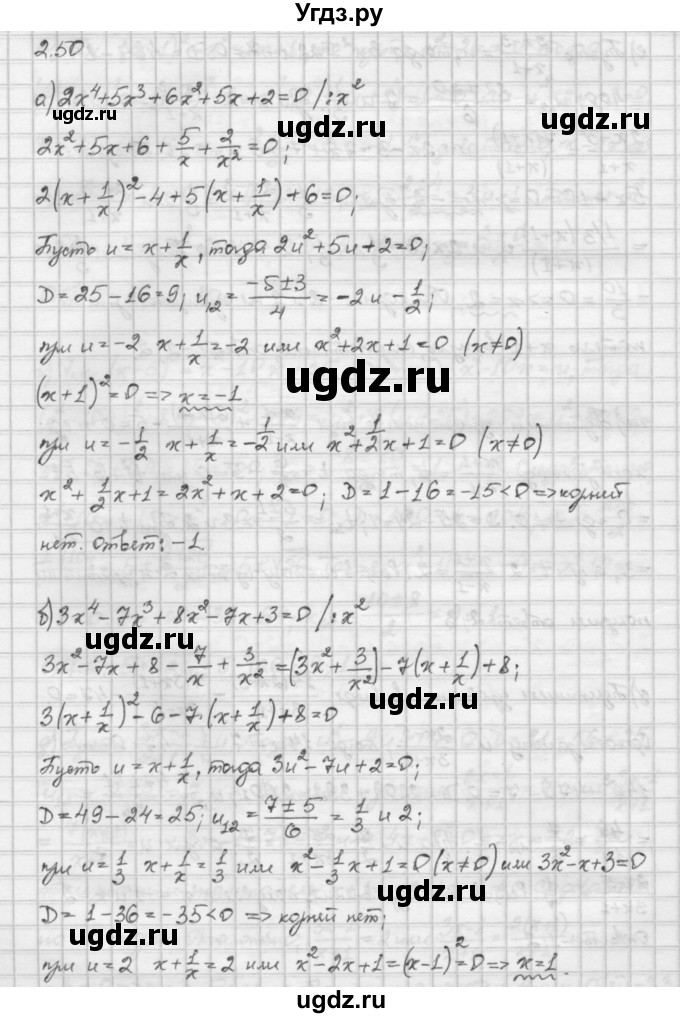 Угдз.ру
2.50
а) 2x⁴+5x³+6x²+5x+2=0 /:x²
2x²+5x+6+5/x+2/x²=0;
2(x+1/x)²-4+5(x+1/x)+6=0;
Пусть u=x+1/x, тогда 2u²+5u+2=0;
D=25-16=9; u₁₂=(-5±3)/4=-2 и -1/2;
при u=-2 x+1/x=-2 или x²+2x+1=0 (x≠0)
ugdz.ru
(x+1)²=0 => x=-1
при u=-1/2 x+1/x=-1/2 или x²+1/2x+1=0 (x≠0)
x²+1/2x+1=2x²+x+2=0; D=1-16=-15<0 => корней
ugdz.ru ugdz.ru
нет. ответ: -1.
б) 3x⁴-7x³+8x²-7x+3=0 /:x²
ugdz.ru
3x²-7x+8-7/x+3/x²=(3x²+3/x²)-7(x+1/x)+8;
ugdz.ru
3(x+1/x)²-6-7·(x+1/x)+8=0
Пусть u=x+1/x, тогда 3u²-7u+2=0;
D=49-24=25; u₁₂=(7±5)/6=1/3 и 2;
при u=1/3 x+1/x=1/3 или x²-1/3x+1=0 (x≠0) или 3x²-x+3=0
ugdz.ru
D=1-36=-35<0 => корней нет;
ugdz.ru
при u=2 x+1/x=2 или x²-2x+1=(x-1)²=0 => x=1.
ugdz.ru